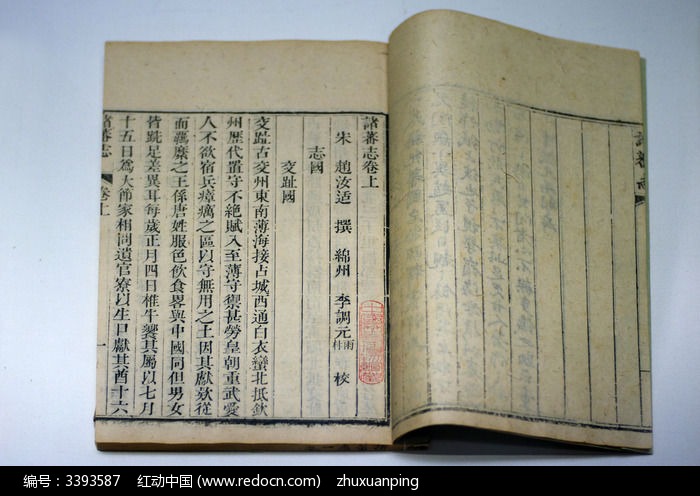 諸蕃志卷上
宋 趙汝适 撰 綿州 李調元 雨村 校
志國
交趾國
交趾古交州東南薄海接占城西通白衣蠻北抵欽
州歷代置守不絶賦入至薄守禦甚勞皇朝重武愛
人不欲宿兵瘴癘之區以守無用之土因其獻欵從
而羈縻之王係唐姓服色飲食畧與中國同但男女
皆跣足差異耳每歲正月四日椎牛饗其屬以七月
十五日爲大節家相問遺官寮以生口獻其酋十六
諸蕃志 卷上 一
编号：3393587 红动中国 (www.redocn.com) zhuxuanping